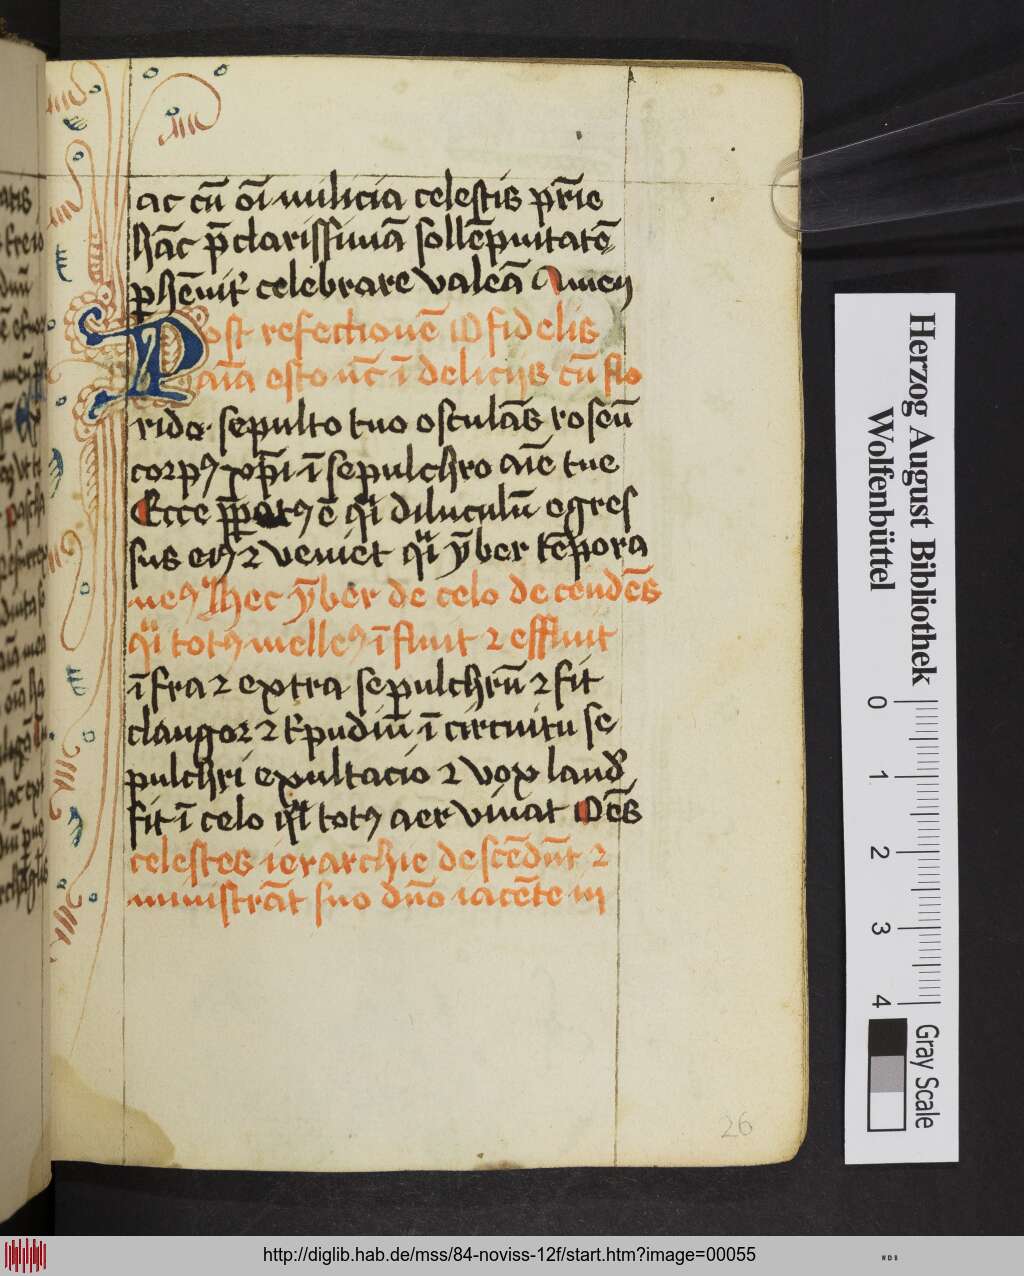 ac cū oī milicia celestis p̄rie
hāc p̄clarissimā sollēpnitatē
celebrare valeā Amen
Post refectionē O fidelis
aīa esto nc̄ ī delicijs cū flo
rido sepulto tuo osculās roseū
corpꝰ xp̄i ī sepulchro aīe tue
Ecce ē diluculū egres
sus eiꝰ ⁊ veniet ymber tēpora
neꝰ hec ymber de celo de cendēs
totꝰ melleꝰ īfluit ⁊ effluit
īfra ⁊ extra sepulchrū ⁊ fit
clangor ⁊ t'pudiū ī circuitu se
pulchri exultacio ⁊ vox laud'
fit ī celo totꝰ aer viuat Oēs
celestes ierarchie descēdūt ⁊
ministrāt suo dn̄o iacēte in
26
Herzog August Bibliothek
Wolfenbüttel
0 1 2 3 4
Gray Scale
http://diglib.hab.de/mss/84-noviss-12f/start.htm?image=00055